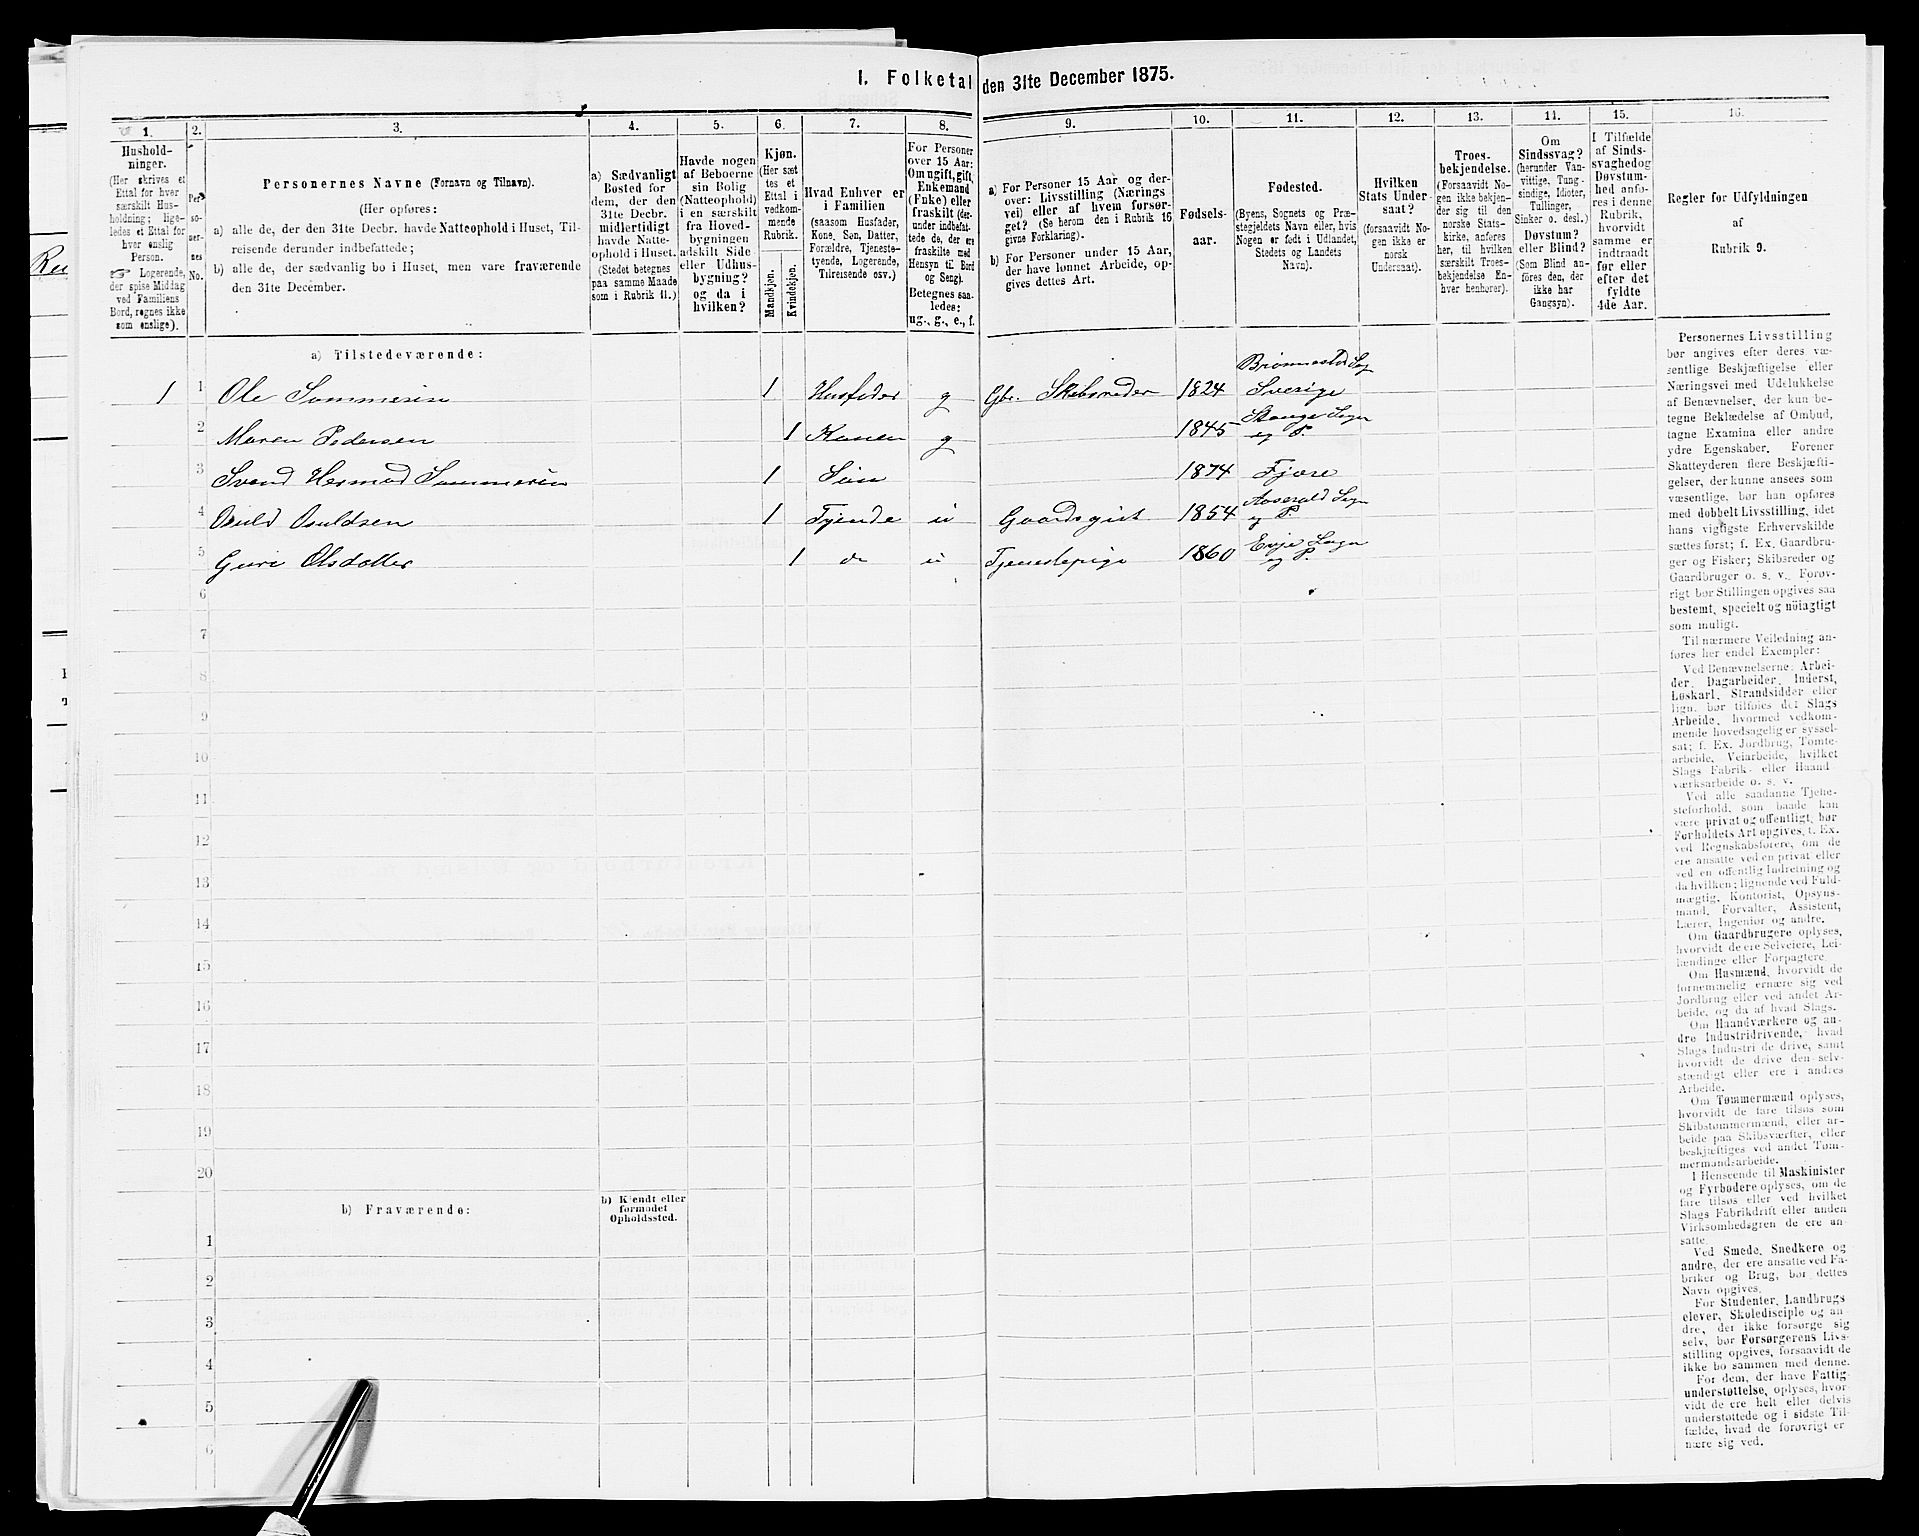 I. Folketal den 31te December 1875.
1. 2. 3. 4. 5. 6. 7. 8. 9. 10. 11. 12. 13. 14. 15. 16.
Hushold-
ninger.
(Her skrives et
Ettal for hver
særskilt Hus-
holdning; lige-
ledes et Ettal for
hver enslig
Person.
☞ Logerende,
der spise Middag
ved Familiens
Bord, regnes ikke
som enslige).
Per-
so-
ner-
nes
No.
Personernes Navne (Fornavn og Tilnavn).
(Her opføres:
a) alle de, der den 31te Decbr. havde Natteophold i Huset, Til-
reisende derunder indbefattede;
b) alle de, der sædvanlig bo i Huset, men vare fraværende
den 31te December.
a) Sædvanligt
Bosted for
dem, der den
31te Decbr.
midlertidigt
havde Natte-
ophold i Huset.
(Stedet betegnes
paa samme Maade
som i Rubrik 11.)
Havde nogen
af Beboerne
sin Bolig
(Natteophold)
i en særskilt
fra Hoved-
bygningen
adskilt Side-
eller Udhus-
bygning?
og da i
hvilken?
Kjøn.
(Her sæt
tes et
Ettal i
vedkom-
mende
Rubrik.
Mandkjøn.
Kvindekjøn.
Hvad Enhver er
i Familien
(saasom Husfader,
Kone, Søn, Datter,
Forældre, Tjeneste-
tyende, Logerende,
Tilreisende osv.)
For Personer
over 15 Aar:
Om ugift, gift,
Enkemand
(Enke) eller
fraskilt (der-
under indbefat-
tede de, der ere
fraskilte med
Hensyn til Bord
og Seng).
Betegnes saa-
ledes:
ug., g., e., f.
a) For Personer 15 Aar og der-
over: Livsstilling (Nærings-
vei) eller af hvem forsør-
get? (Se herom den i Rubrik 16
givne Forklaring).
b) For Personer under 15 Aar,
der have lønnet Arbeide, op-
gives dettes Art.
Fødsels-
aar.
Fødested.
(Byens, Sognets og Præ-
stegjeldets Navn eller, hvis
Nogen er født i Udlandet,
Stedets og Landets
Navn).
Hvilken
Stats Under-
saat?
(forsaavidt No-
gen ikke er
norsk
Undersaat).
Troes-
bekjendelse.
(Forsaavidt No-
gen ikke bekjen-
der sig til den
norske Stats-
kirke, anføres
her, til hvilken
særskilt Troes-
bekjendelse En-
hver henhører).
Om
Sindssvag?
(herunder Van-
vittige, Tung-
sindige, Idioter,
Tullinger,
Sinker o. desl.)
Døvstum?
eller Blind?
(Som Blind an-
føres den, der
ikke har
Gangsyn).
I Tilfælde
af Sinds-
svaghed og
Døvstum-
hed anfø-
res i denne
Rubrik,
hvorvidt
samme er
indtraadt
før eller
efter det
fyldte
4de Aar.
Regler for Udfyldningen
af
Rubrik 9.
a) Tilstedeværende:
1 1 Ole Sommerin 1 Husfader g Gbr. Skibsreder 1824 Sverige
2 Maren Pedersen 1 Konen g 1845 Stange Sogn og P.
3 Svend Hermod Sommerin 1 Søn 1874 Fjære
4 Osuld Osuldsen 1 Tjende u Gaardsgut 1854 Aaserald Sogn og P.
5 Guri Olsdatter 1 do u Tjenestepige 1860 Evje Sogn og P.
6
7
8
9
10
11
12
13
14
15
16
17
18
19
20
b) Fraværende:
b) Kjendt eller
formodet
Opholdssted.
1
2
3
4
5
6
Personernes Livsstilling
bør angives efter deres væ-
sentlige Beskjæftigelse eller
Næringsvei med Udelukkelse
af Benævnelser, der kun be-
tegne Beklædelse af Ombud,
tagne Examina eller andre
ydre Egenskaber. Forener
Skatteyderen flere Beskjæfti-
gelser, der kunne ansees som
væsentlige, bør han opføres
med dobbelt Livsstilling, idet
hans vigtigste Erhvervskilde
sættes først; f. Ex. Gaardbru-
ger og Fisker; Skibsreder og
Gaardbruger o. s. v. Forøv-
rigt bør Stillingen opgives saa
bestemt, specielt og nöiagtigt
som muligt.
Til nærmere Veiledning an-
føres her endel Exempler:
Ved Benævnelserne: Arbei-
der, Dagarbeider, Inderst,
Løskarl, Strandsidder eller
lign. bør tilføies det Slags
Arbeide, hvormed vedkom-
mende hovedsagelig er syssel-
sat; f. Ex. Jordbrug, Tomte-
arbeide, Veiarbeide, hvilket
Slags Fabrik- eller Haand-
værksarbeide o. s. v.
Ved alle saadanne Tjene-
steforhold, som baade kan
være privat og offentligt, bør
Forholdets Art opgives, f. Ex.
ved Regnskabsførere, om de
ere ansatte ved en privat eller
ved en offentlig Indretning og
da hvilken; lignende ved Fuld-
mægtig, Kontorist, Opsyns-
mand, Forvalter, Assistent,
Lærer, Ingeniør og andre.
Om Gaardbrugere oplyses,
hvorvidt de ere Selveiere, Lei-
lændinge eller Forpagtere.
Om Husmænd, hvorvidt de
fornemmelig ernære sig ved
Jordbrug eller ved andet Ar-
beide, og da af hvad Slags.
Om Haandværkere og an-
dre Industridrivende, hvad
Slags Industri de drive, samt
hvorvidt de drive den selv-
stændigt eller ere i andres
Arbeide.
Om Tømmermænd oplyses,
hvorvidt de fare tilsøs som
Skibstømmermænd, eller ar-
beide paa Skibsværfter, eller
beskjæftiges ved andet Tøm-
mermandsarbeide.
I Henseende til Maskinister
og Fyrbødere oplyses, om de
fare tilsøs eller ved hvilket
Slags Fabrikdrift eller anden
Virksomhedsgren de ere an-
satte.
Ved Smede, Snedkere og
andre, der ere ansatte ved Fa-
briker og Brug, bør dettes
Navn opgives.
For Studenter, Landbrugs
elever, Skoledisciple og an-
dre, der ikke forsørge sig
selv, bør Forsørgerens Livs-
stilling opgives, forsaavidt de
ikke bo sammen med denne.
For dem, der have Fattig-
understøttelse, oplyses, hvor-
vidt de ere helt eller delvis
understøttede og i sidste Til-
fælde, hvad de forøvrigt er-
nære sig ved.